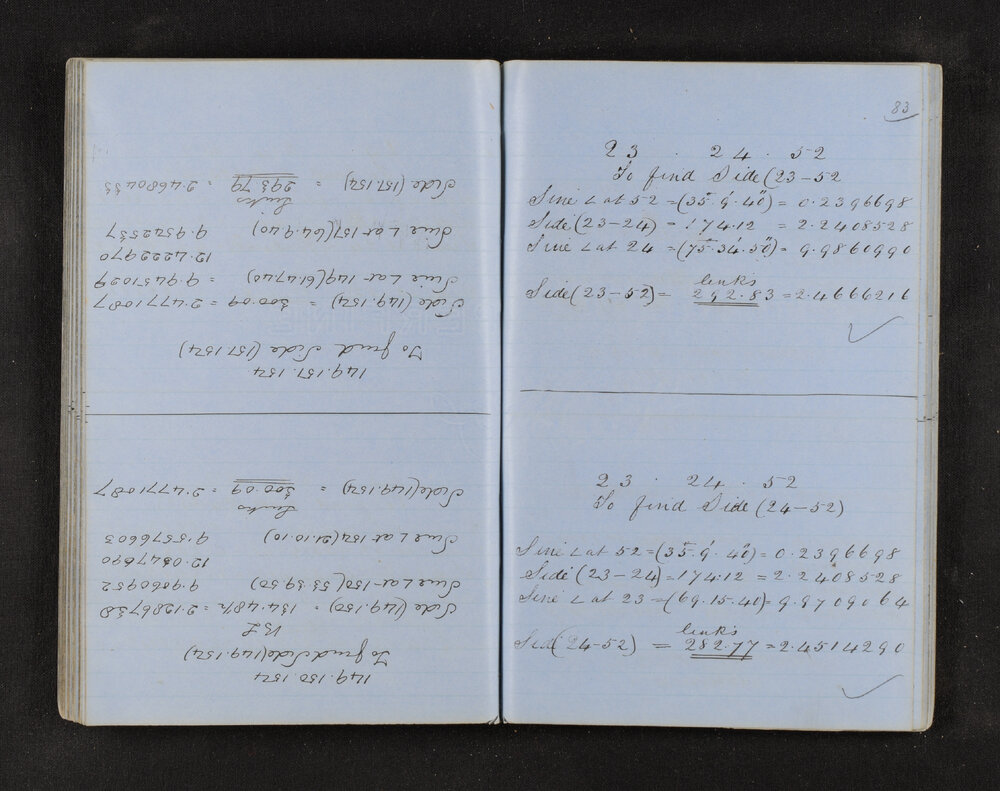 149.150.154
To find Side (149.154)
BL
Side (149.150) = 134.48½ = 2.1286738
Sine L at 150 (53.39.50) 9.9060952
12.0347690
Sine L at 154 (21.10.10) 9.5576603
Links
Side (149.154) = 300.09 = 2.4771087
149.157.154
To find Side (157.154)
Side (149.154) = 300.09 = 2.4771087
Sine L at 149 (61.47.40) = 9.9451029
12.4222970
Sine L at 157 (64.9.40) 9.9542537
Links
Side (157.154) = 293.79 = 2.4680433
83
23 . 24 . 52
To find Side (23–52
Sine ∠ at 52 = (35°.9'.40") = 0.2396698
Side (23–24) = 174.12 = 2.2408528
Sine ∠ at 24 = (75°.34'.50") = 9.9860990
links
Side (23–52) = 292.83 = 2.4666216
23 . 24 . 52
To find Side (24–52)
Sine ∠ at 52 = (35°.9'.40") = 0.2396698
Side (23–24) = 174.12 = 2.2408528
Sine ∠ at 23 = (69.15.40) = 9.9709064
links
Side (24–52) = 282.77 = 2.4514290